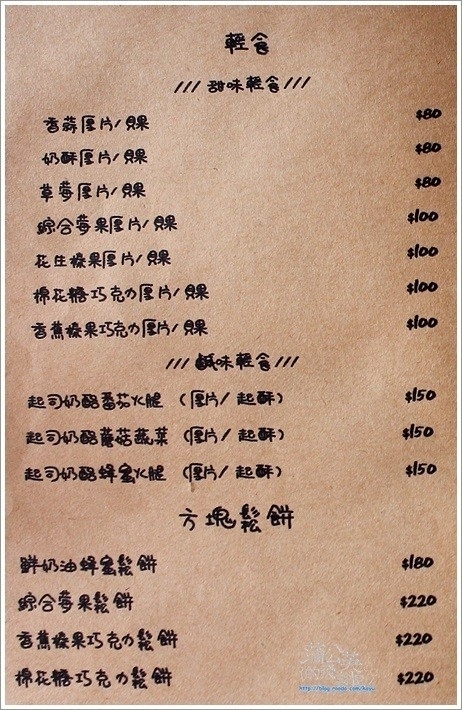 輕食
/// 甜味輕食 ///
香蒜厚片/貝果 $80
奶酥厚片/貝果 $80
草莓厚片/貝果 $80
綜合莓果厚片/貝果 $100
花生榛果厚片/貝果 $100
棉花糖巧克力厚片/貝果 $100
香蕉榛果巧克力厚片/貝果 $100
/// 鹹味輕食 ///
起司奶酪番茄火腿 (厚片/起酥) $150
起司奶酪蘑菇蔬菜 (厚片/起酥) $150
起司奶酪蜂蜜火腿 (厚片/起酥) $150
方塊鬆餅
鮮奶油蜂蜜鬆餅 $180
綜合莓果鬆餅 $220
香蕉榛果巧克力鬆餅 $220
棉花糖巧克力鬆餅 $220